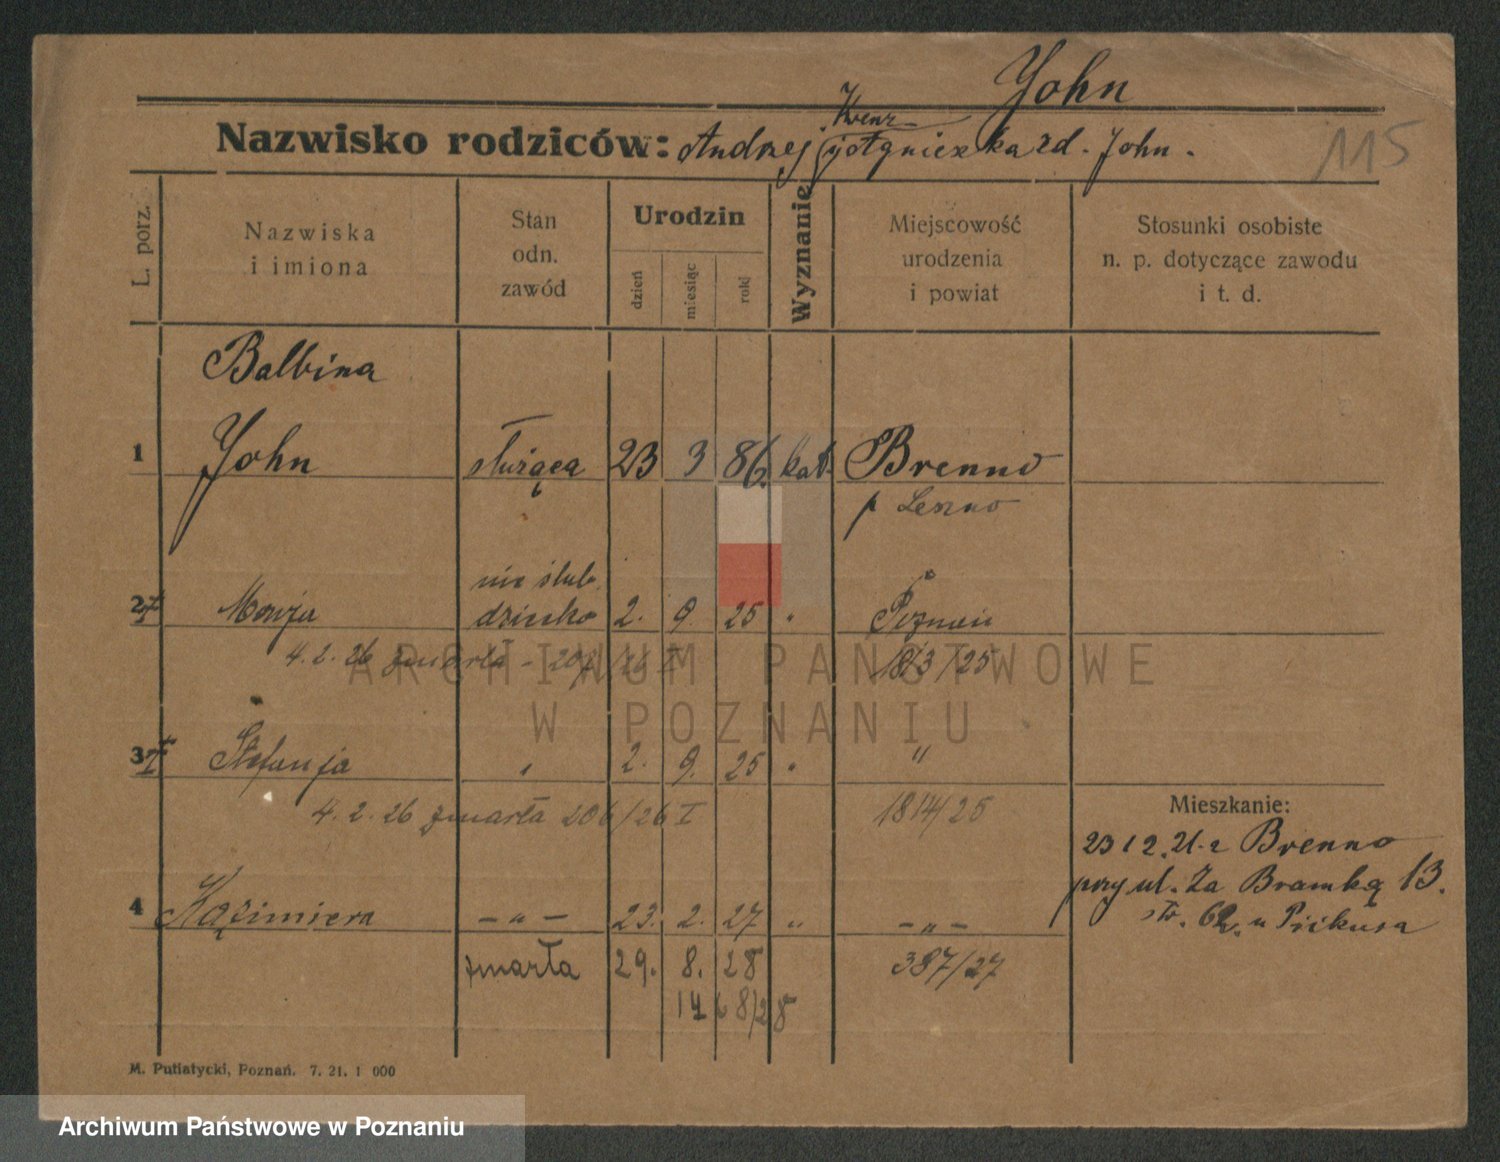 John
Krenz
Nazwisko rodziców: Andrzej Agnieszka zd. John.
115
L. porz.
Nazwiska
i imiona
Stan
odn.
zawód
Urodzin
dzień
miesiąc
rok
Wyznanie
Miejscowość
urodzenia
i powiat
Stosunki osobiste
n. p. dotyczące zawodu
i t. d.
Balbina
1 John służąca 23 3 86. kat. Brenno
p Leszno
nie ślub.
2 Marja dziecko 2. 9. 25 " Poznań
4. 2. 26 zmarła - 207/26 I 1813/25
3 Stefanja " 2. 9. 25 " "
4. 2. 26 zmarła 206/26 I 1814/25
Mieszkanie:
23 12. 21. z Brenno
przy ul. Za Bramką 13.
4 Kazimiera - " - 23. 2. 27 " - " -
zmarła 29. 8. 28 387/27
1468/28
M. Putiatycki, Poznań. 7. 21. 1 000
ARCHIWUM PAŃSTWOWE
W POZNANIU
Archiwum Państwowe w Poznaniu